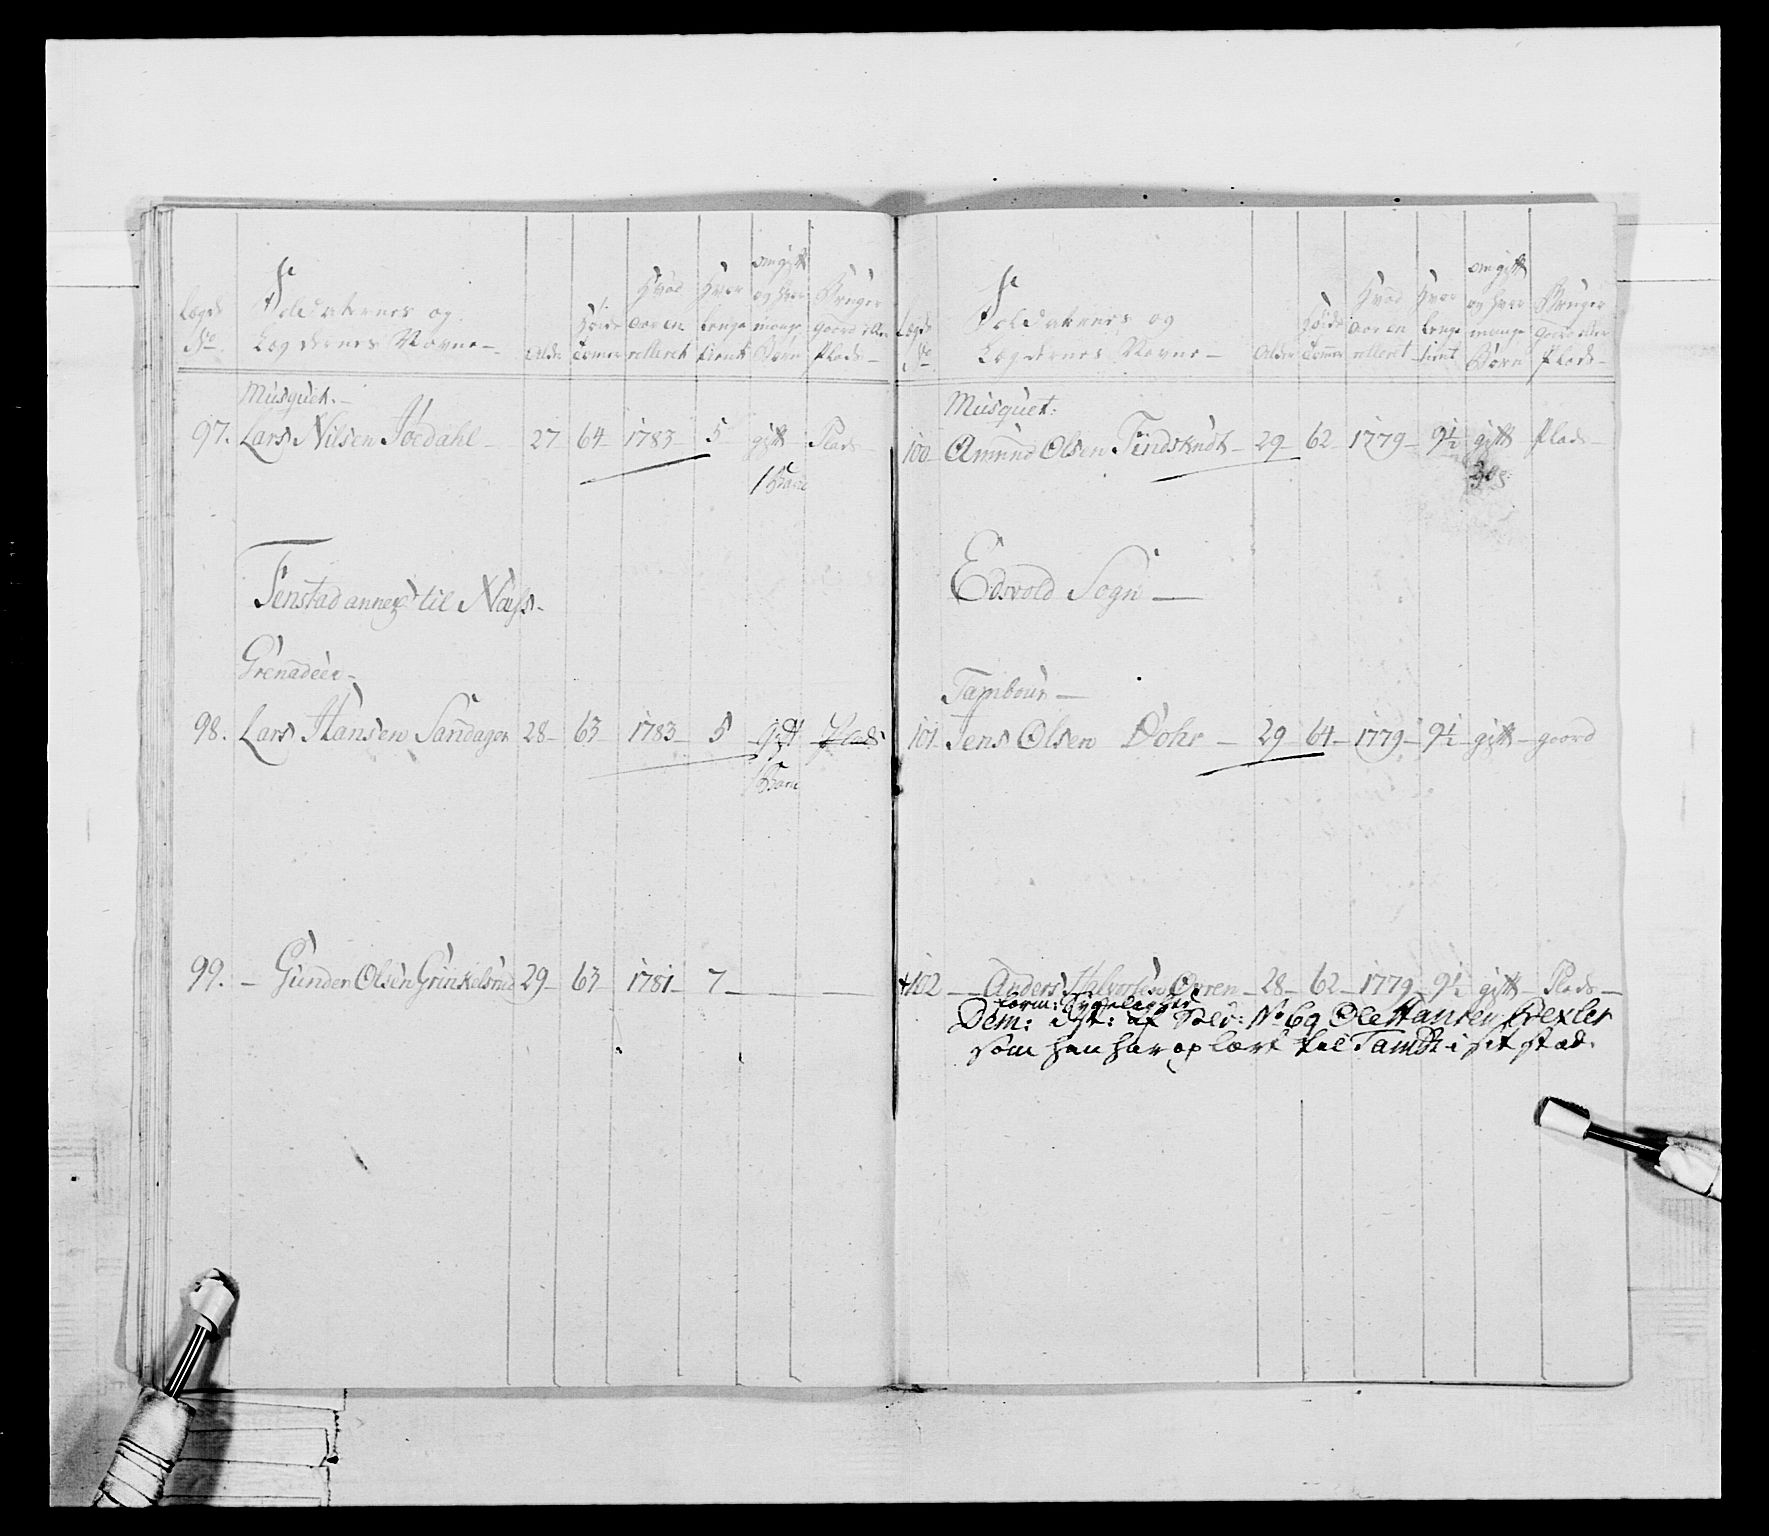 Lægd No
Soldaternes og
Lægdernes Navne
Alder
Høide
Tomer
Hvad
aar en
rolleret
Hvor
lenge
tient
om gift
og hvor
mange
Børn
Bruger
gaard eller
Plads
Musquet.
97. Lars Nilsen Joedahl 27 64 1783 5 gift Plads
1 Barn
Fenstad annex til Næss.
Grenadeer
98. Lars Hansen Sandager 28 63 1783 5 gift Plads
1 Barn
99. Gunder Olsen Grinkelsrud 29 63 1781 7
Lægd No
Soldaternes og
Lægdernes Navne
Alder
Høide
Tommer
Hvad
aar en
rolleret
Hvor
lenge
tient
om gift
og hvor
mange
Børn
Bruger
gaard eller
Plads
Musquet:
100 Amund Olsen Findstudt 29 62 1779 9½ gift Plads
Edsvold Sogn
Tambour
101 Jens Olsen Dohr 29 64 1779 9½ gift gaard
+102 Anders Halvorsen Ovren 28 62 1779 9½ gift Plads
form: Sygelighed
Dem: af Sold: No 69 Ole Hansen
som han har op lært til Tamb i sit stæd.